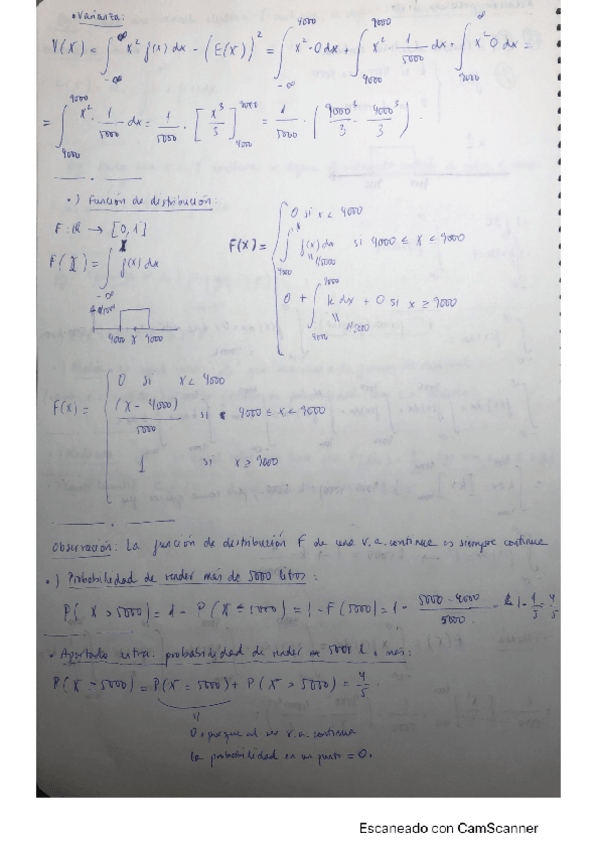 • Varianza:
V(X) = ∫_{-∞}^{∞} x² f(x) dx - (E(X))² = ∫_{-∞}^{4000} x² · 0 dx + ∫_{4000}^{9000} x² · 1/5000 dx + ∫_{9000}^{∞} x² 0 dx =
= ∫_{4000}^{9000} x² · 1/5000 dx = 1/5000 · [x³/3]_{4000}^{9000} = 1/5000 · (9000³/3 - 4000³/3).
•) Función de distribución:
F: R → [0,1]
F(X) = ∫_{-∞}^{x} f(x) dx
4000 x 9000
F(x) = { 0 si x < 4000
∫_{4000}^{x} f(x) dx si 4000 ≤ x < 9000
1/5000
0 + ∫_{4000}^{9000} k dx + 0 si x ≥ 9000
1/5000
F(x) = { 0 si x < 4000
(x - 4000)/5000 si 4000 ≤ x < 9000
1 si x ≥ 9000
Observación: La función de distribución F de una v.a. continua es siempre continua
•) Probabilidad de vender más de 5000 litros:
P(X > 5000) = 1 - P(X ≤ 5000) = 1 - F(5000) = 1 - (5000 - 4000)/5000 = 1 - 1/5 = 4/5
• Apartado extra: probabilidad de vender 5000 l o más:
P(X ≥ 5000) = P(X = 5000) + P(X > 5000) = 4/5.
0, porque al ser v.a. continua
la probabilidad en un punto = 0.
Escaneado con CamScanner